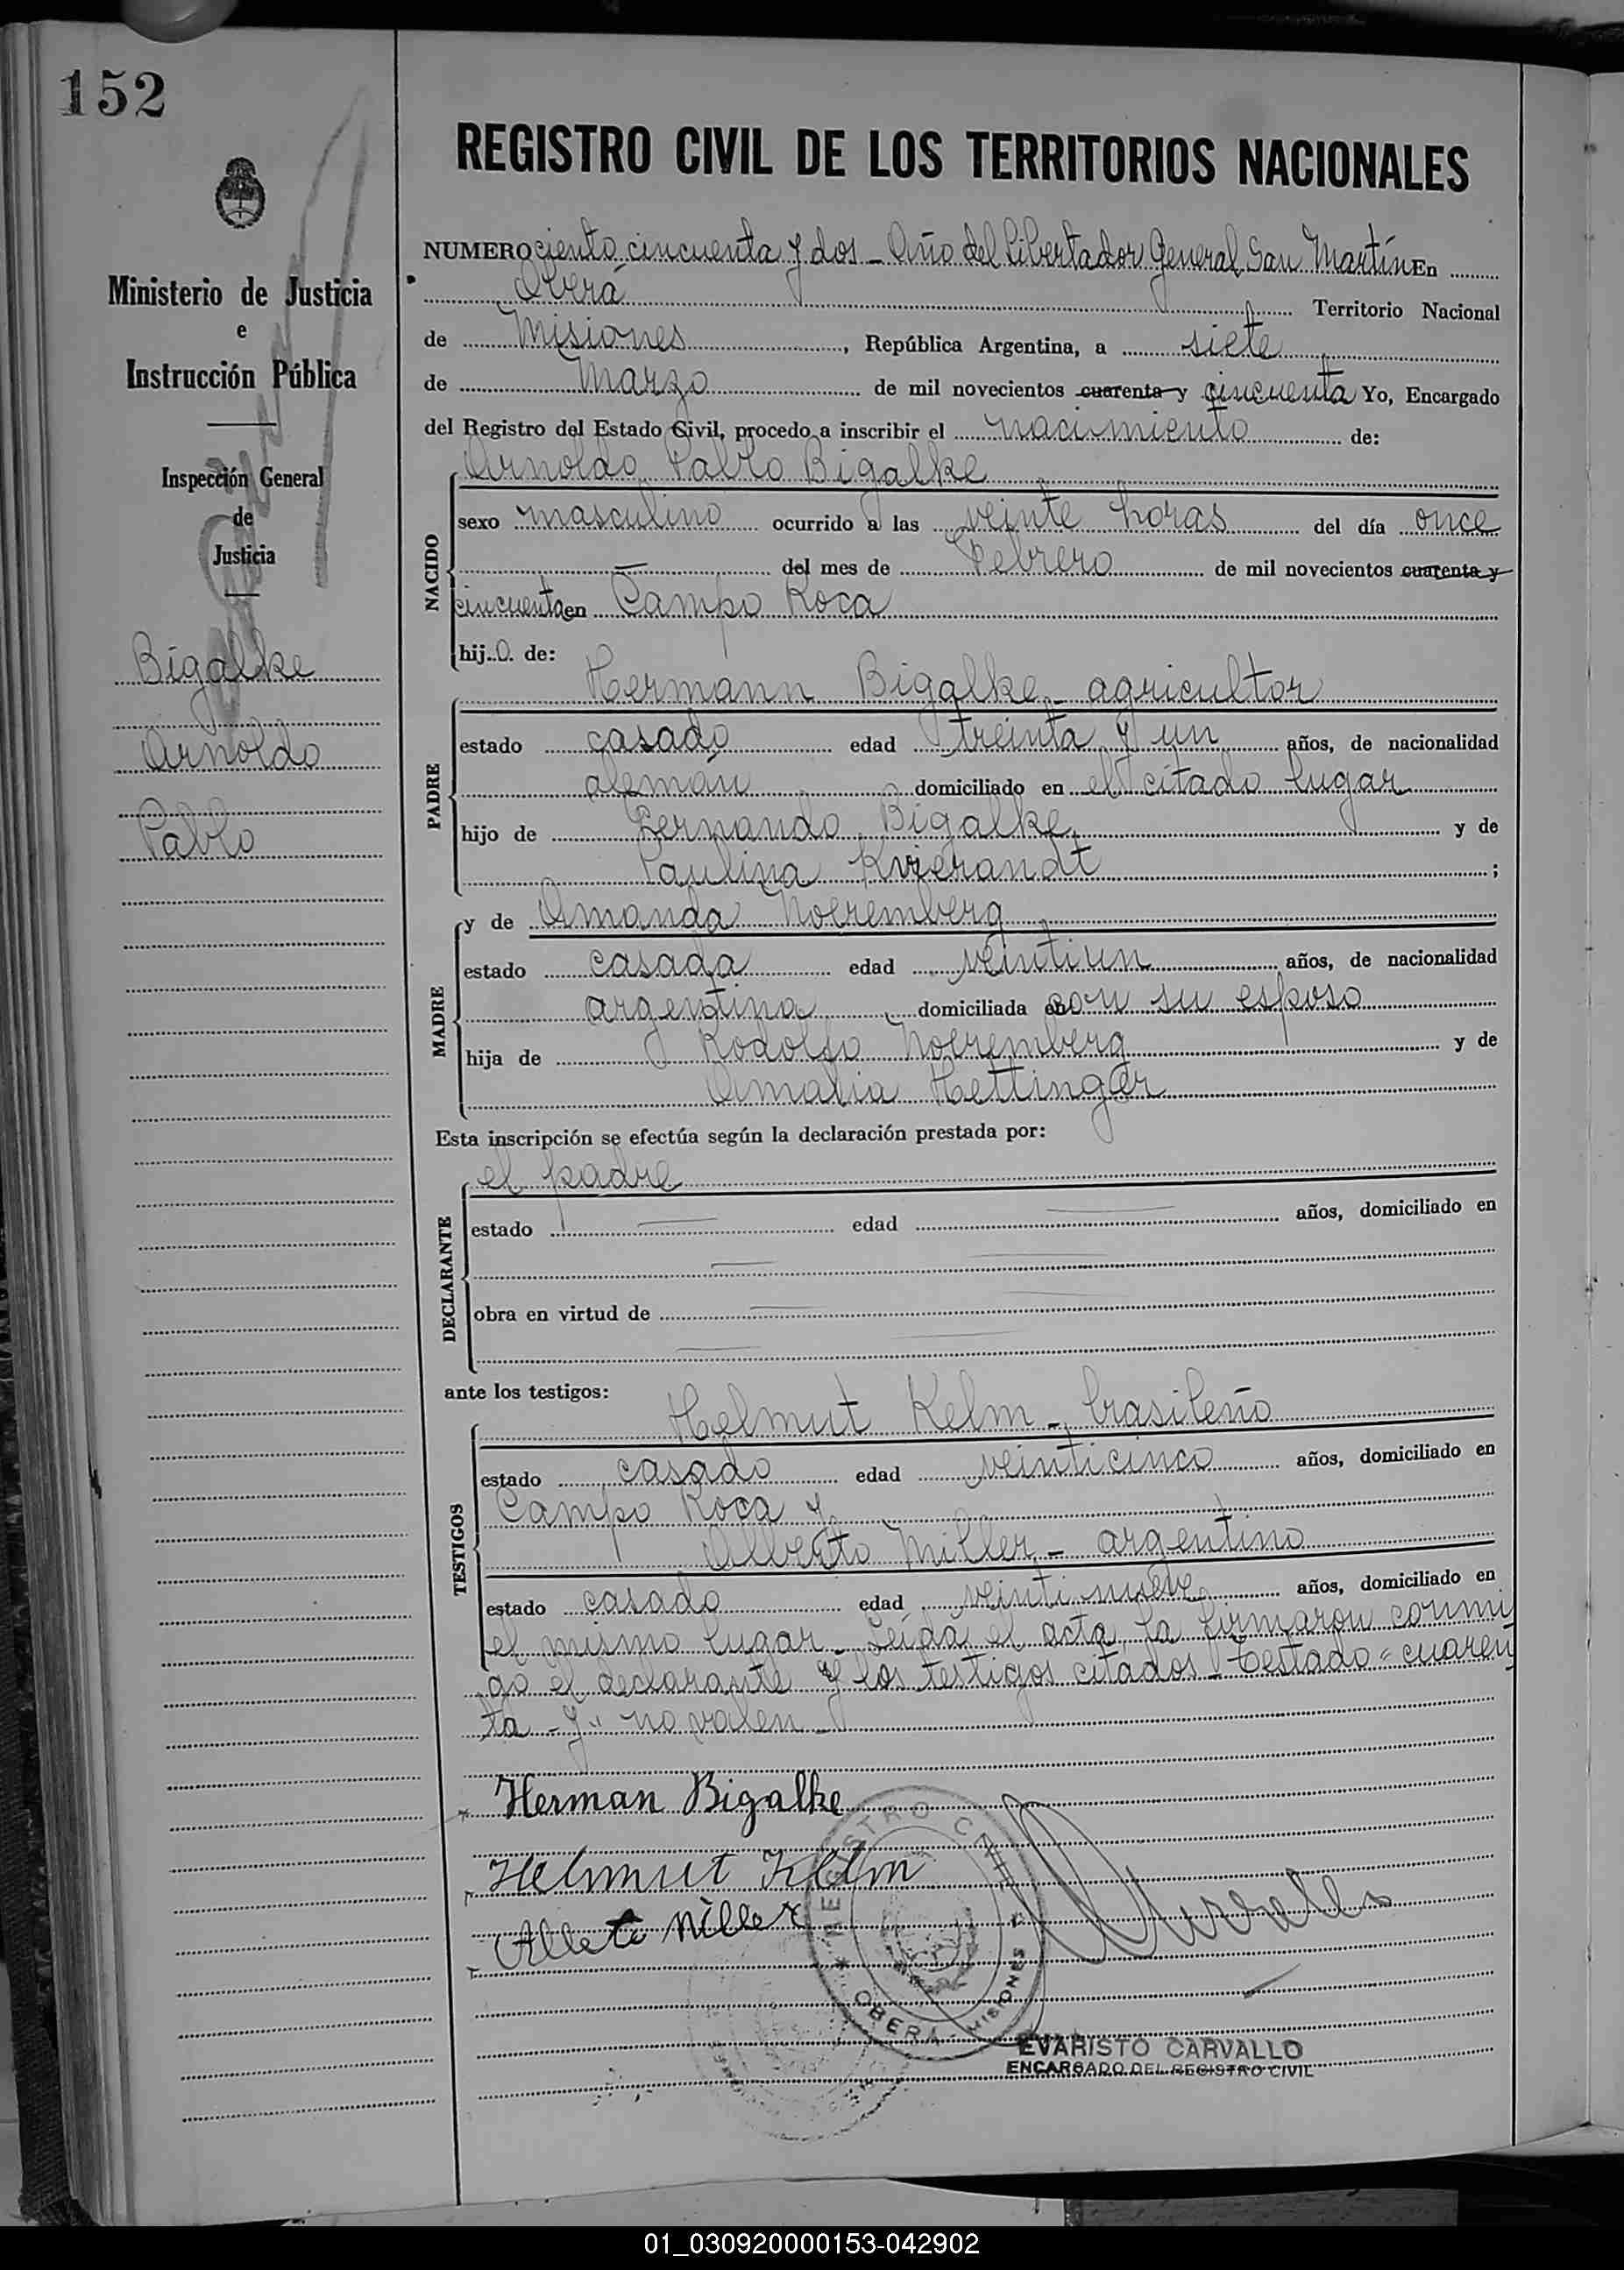 152
REGISTRO CIVIL DE LOS TERRITORIOS NACIONALES
Ministerio de Justicia
e
Instrucción Pública
Inspección General
de
Justicia
Bigalke
Arnoldo
Pablo
NUMERO ciento cincuenta y dos - Año del Libertador General San Martín En
Oberá Territorio Nacional
de Misiones, República Argentina, a siete
de Marzo de mil novecientos cuarenta y cincuenta Yo, Encargado
del Registro del Estado Civil, procedo a inscribir el nacimiento de:
Arnoldo Pablo Bigalke
NACIDO
sexo masculino ocurrido a las veinte horas del día once
— del mes de Febrero de mil novecientos cuarenta y
cincuenta en Campo Roca
hijo de:
Hermann Bigalke - agricultor
PADRE
estado casado edad treinta y un años, de nacionalidad
alemán domiciliado en el citado lugar
hijo de Fernando Bigalke y de
Paulina ;
y de Amanda Noeremberg
MADRE
estado casada edad veintiun años, de nacionalidad
argentina domiciliada con su esposo
hija de Rodolfo Noeremberg y de
Amalia Hettinger
Esta inscripción se efectúa según la declaración prestada por:
el padre
DECLARANTE
estado — edad — años, domiciliado en
obra en virtud de
ante los testigos:
Helmut Kelm - brasileño
TESTIGOS
estado casado edad veinticinco años, domiciliado en
Campo Roca y
Alberto Miller - argentino
estado casado edad veintinueve años, domiciliado en
el mismo lugar - Leída el acta, la firmaron conmi
go el declarante y los testigos citados - Testado = cuaren
ta - y" no valen -
Herman Bigalke
Helmut Kelm
Alberto Miller
Carvallo
REGISTRO CIVIL
* OBERA - MISIONES *
EVARISTO CARVALLO
ENCARGADO DEL REGISTRO CIVIL
01_030920000153-042902